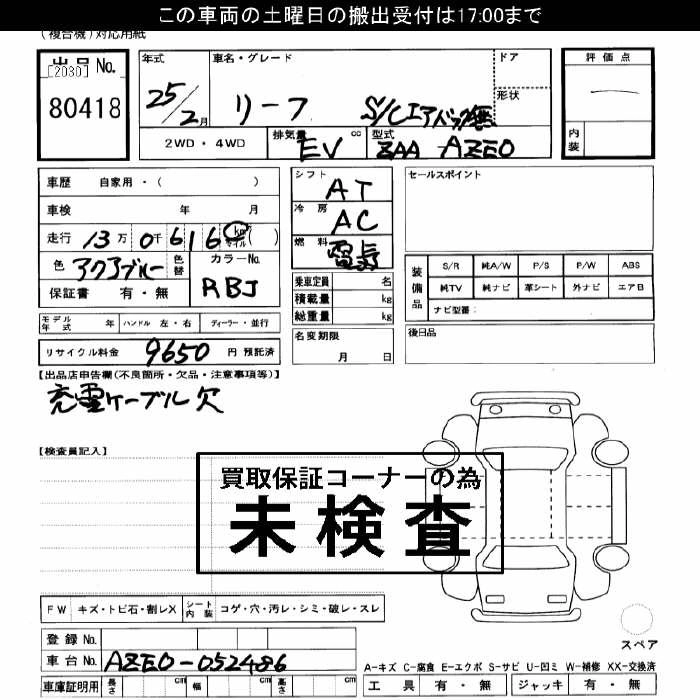 この車両の土曜日の搬出受付は17:00まで
(複合機)対応用紙
出品 No.
[2030]
80418
年式 25/2月
車名・グレード リーフ S/Cエアバッグ無
ドア
形状
2WD・4WD 排気量 EV cc 型式 ZAA-AZE0
評価点
—
内装
車歴 自家用・( )
車検 年 月
走行 13万 0千 616 km マイル ( )
色 アクアブルー 色替 カラーNo. RBJ
保証書 有・無
モデル年式 年 ハンドル 左・右 ディーラー・並行
リサイクル料金 9650 円 預託済
シフト AT
冷房 AC
燃料 電気
乗車定員 名
積載量 kg
総重量 kg
名変期限
月 日
セールスポイント
装備品
S/R 純A/W P/S P/W ABS
純TV 純ナビ 革シート 外ナビ エアB
ナビ型番:
後日品
【出品店申告欄(不良箇所・欠品・注意事項等)】
充電ケーブル欠
【検査員記入】
買取保証コーナーの為
未検査
FW キズ・トビ石・割レX シート内装 コゲ・穴・汚レ・シミ・破レ・スレ
登録 No.
車台 No. AZE0-052486
車庫証明用 長さ cm 幅 cm 高さ cm
スペア
A-キズ C-腐食 E-エクボ S-サビ U-凹ミ W-補修 XX-交換済
工具 有・無 ジャッキ 有・無